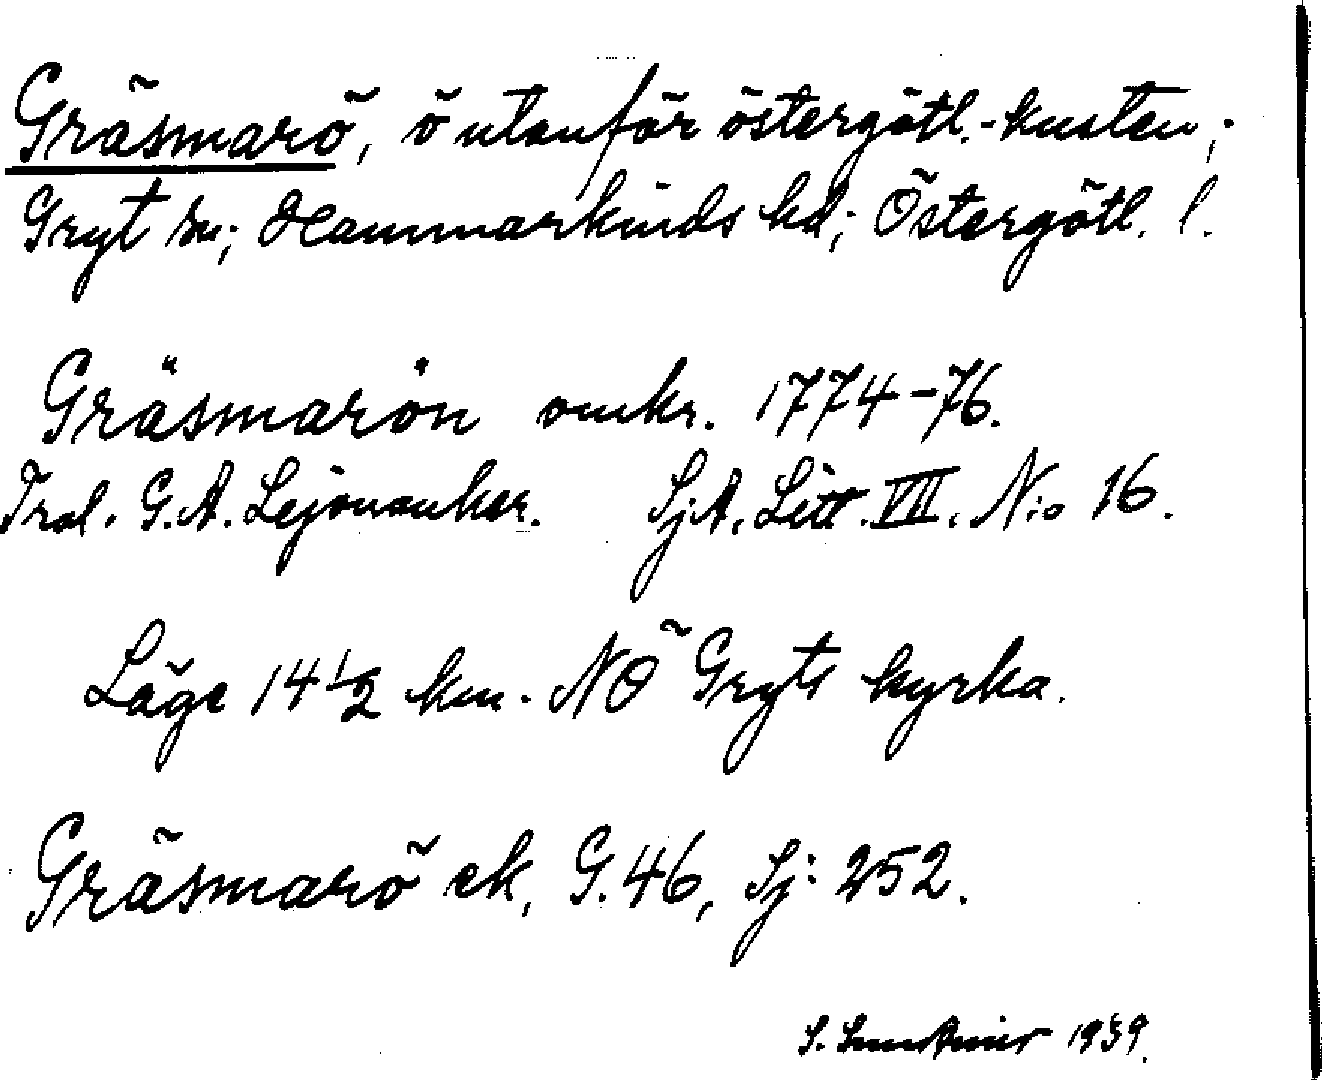 Gräsmarö, ö utanför östergötl.-kusten;
Gryt sn; Hammarkinds hd; Östergötl. l.
Gräsmarön omkr. 1774-76.
G. A. Lejonanker. SjA. Litt. VIII. N:o 16.
Läge 14 1/2 km. NO Gryts kyrka.
Gräsmarö ek, G. 46, Sj: 252.
S. 1939.